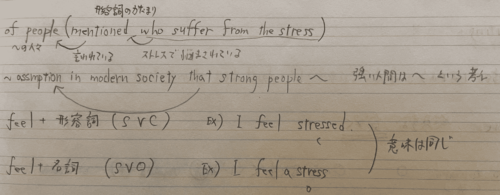 形容詞のかたまり
of people (mentioned who suffer from the stress)
〜な人々 言われている ストレスで悩まされている
~ assmption in modern society that strong people ~ 強い人間は〜という考え
feel + 形容詞 (SVC) Ex) I feel stressed.
C
意味は同じ
feel + 名詞 (SVO) Ex) I feel a stress
O